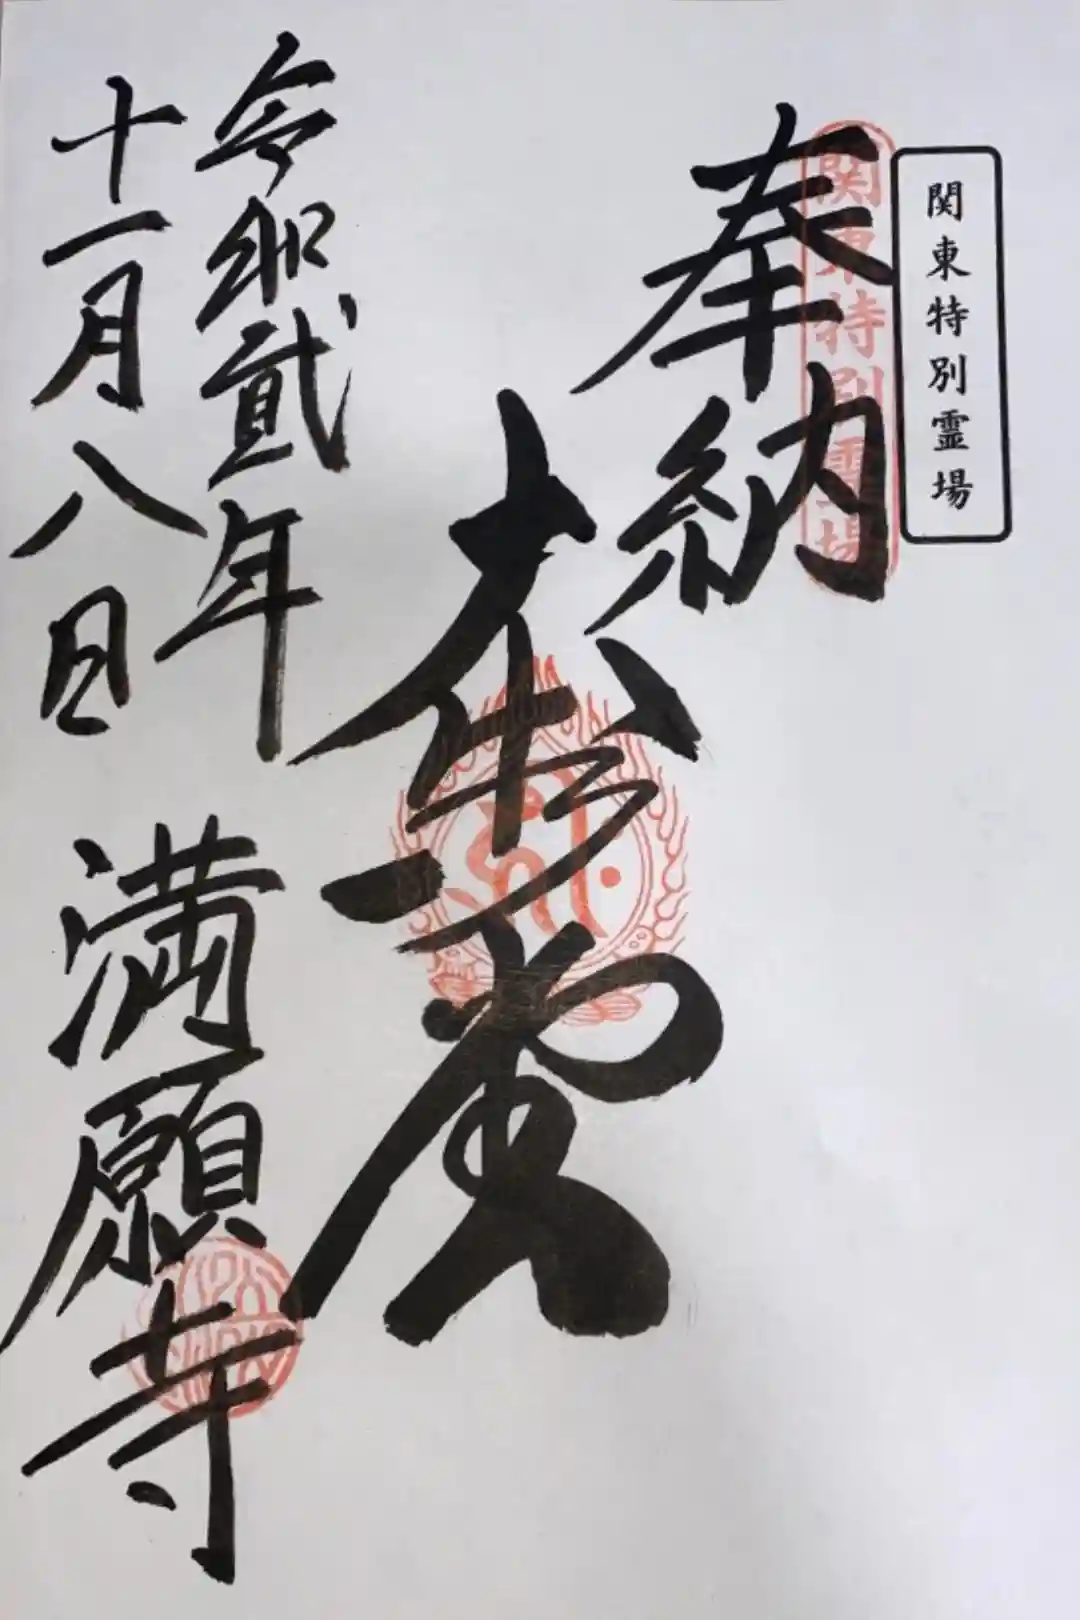 関東特別霊場
関東特別霊場
奉納
令和貳年
十一月八日
満願寺